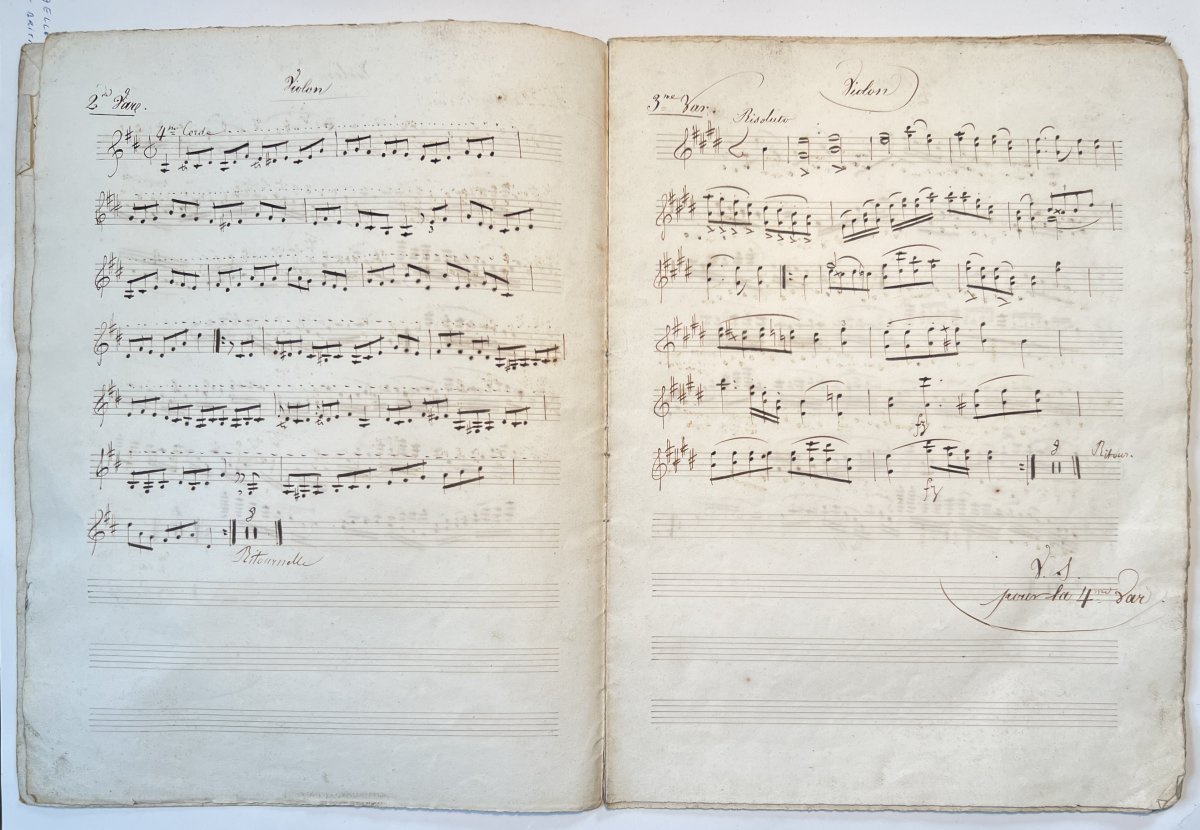 Violon
2ᵈ Var.
4ᵐᵉ Corde
3
8
Ritournelle
Violon
3ᵐᵉ Var.
Risoluto
8
Ritour.
V. S.
pour la 4ᵐᵉ Var.